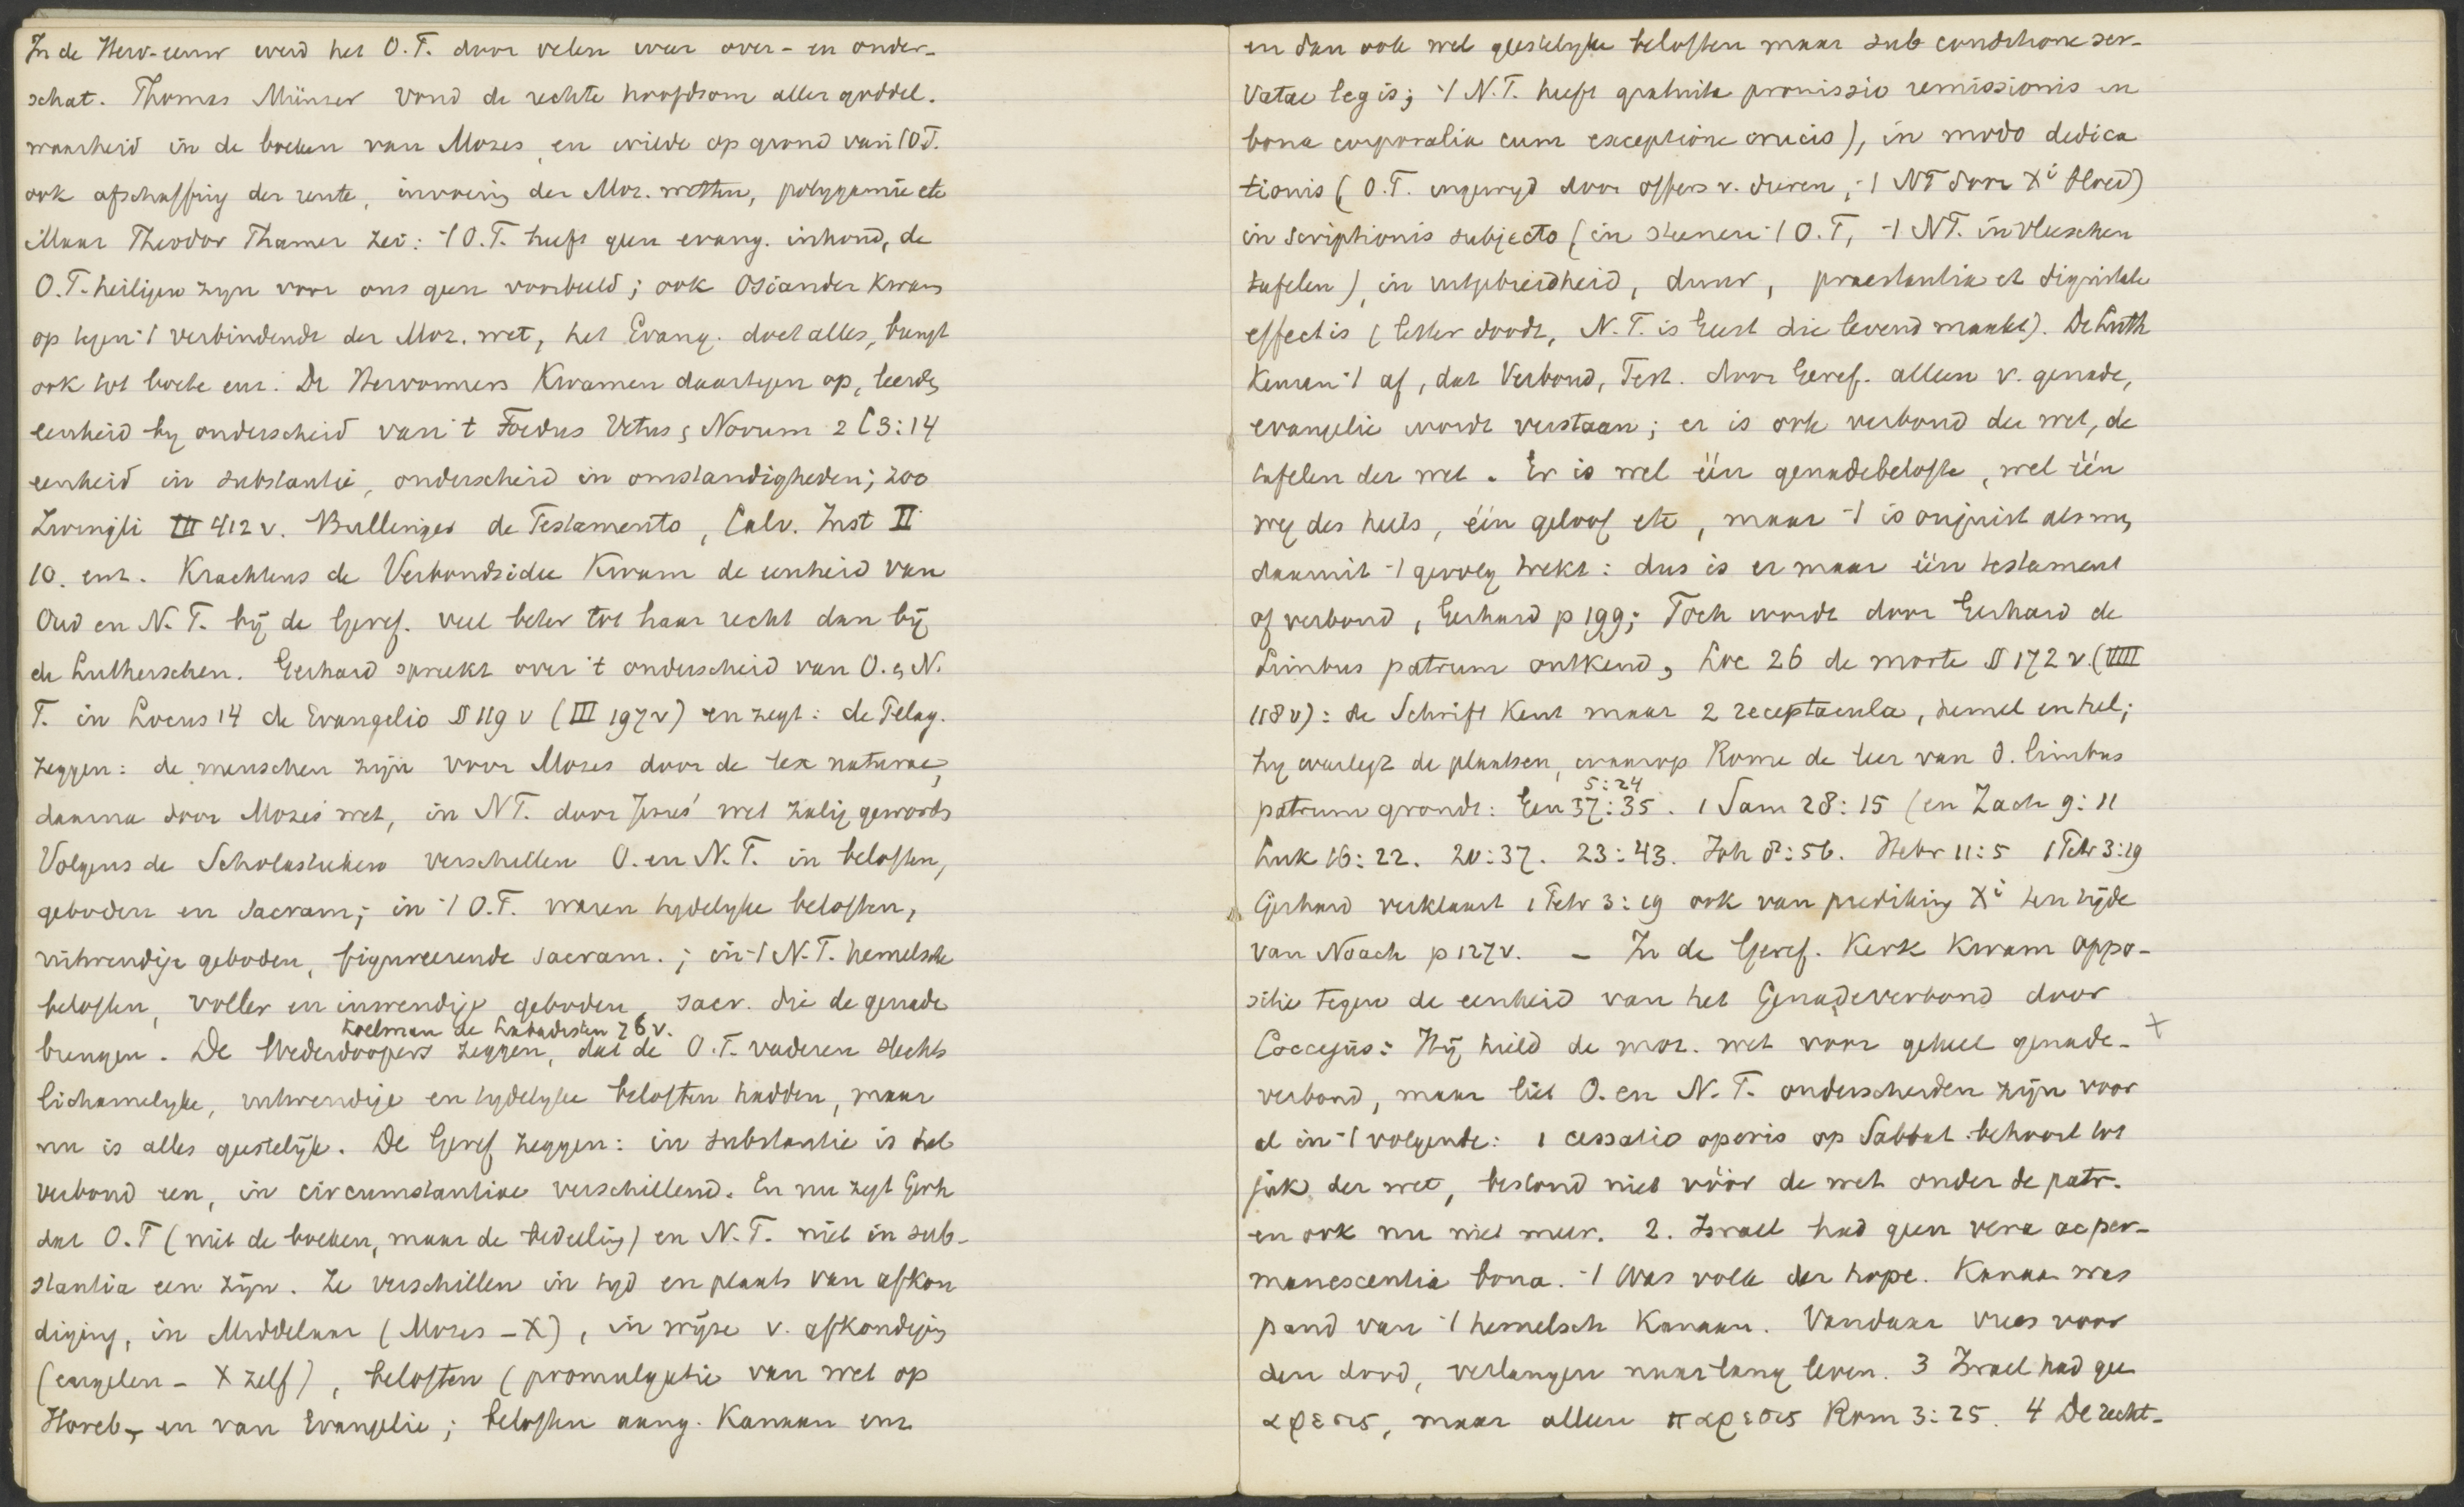 In de Herv-eeuw werd het O.T. door velen weer over- en onder-
schat. Thomas Münzer vond de rechte hoofdsom aller goddel.
waarheid in de boeken van Mozes, en wilde op grond van 't O.T.
ook afschaffing der rente, invoering der Moz. wetten, polygamie etc
Maar Theodor Thamer zei: 't O.T. heeft geen evang. inhoud, de
O.T. heiligen zyn voor ons geen voorbeeld; ook Osiander kwam
op tegen 't verbindende der Moz. wet, het Evang. doet alles, brengt
ook tot boete enz. De Hervormers kwamen daartegen op, leerden
eenheid by onderscheid van 't Foedus Vetus & Novum 2 C 3:14
eenheid in substantie, onderscheid in omstandigheden; zoo
Zwingli III 412 v. Bullinger de Testamento, Calv. Inst II
10. enz. Krachtens de Verbondsidee kwam de eenheid van
Oud en N. T. bij de Geref. veel beter tot haar recht dan bij
de Lutherschen. Gerhard spreekt over 't onderscheid van O. & N.
T. in Locus 14 de Evangelio § 119 v (III 197 v) en zegt: de Pelag.
zeggen: de menschen zijn voor Mozes door de lex naturae,
daarna door Mozes' wet, in NT. door Jezus' wet zalig geworden
Volgens de Scholastieken verschillen O. en N. T. in beloften,
geboden en Sacram; in 't O.T. waren tydelyke beloften,
uitwendige geboden, figureerende sacram.; in 't N. T. hemelsche
beloften, voller en inwendige geboden, sacr. die de genade
Koelman de Labadisten 76 v.
brengen. De Wederdoopers zeggen, dat de O.T. vaderen slechts
lichamelyke, uitwendige en tydelyke beloften hadden, maar
nu is alles geestelijk. De Geref zeggen: in substantie is het
verbond een, in circumstantiae verschillend. En nu zegt Gerh
dat O.T (niet de boeken, maar de bedeeling) en N. T. niet in sub-
stantia een zijn. Ze verschillen in tyd en plaats van afkon
diging, in Middelaar (Mozes - X), in wijze v. afkondiging
(engelen - X zelf), beloften (promulgatie van wet op
Horeb, en van Evangelie; beloften aang. Kanaan enz
en dan ook wel geestelyke beloften maar sub conditione ser-
vatae legis; 't N.T. heeft gratuita promissio remissionis en
bona corporalia cum exceptione crucis), in modo dedica
tionis (O.T. ingewyd door offers v. dieren, 't NT door Xi bloed)
in scriptionis subjecto (in steenen 't O.T, 't NT. in vleeschen
tafelen), in uitgebreidheid, duur, praestantia et dignitate
effectis (letter doodt, N.T. is Geest die levend maakt). De Luth
keuren 't af, dat Verbond, Test. door Geref. alleen v. genade,
evangelie wordt verstaan; er is ook verbond der wet, de
tafelen der wet. Er is wel één genadebelofte, wel één
weg des heils, één geloof etc, maar 't is onjuist als men
daaruit 't gevolg trekt: dus is er maar één testament
of verbond, Gerhard p 199; Toch wordt door Gerhard de
Limbus patrum ontkend, Loc 26 de morte § 172 v. (VIII
118 v): de Schrift kent maar 2 receptacula, hemel en hel;
hy weerlegt de plaatsen, waarop Rome de leer van d. limbus
5:24
patrum grondt: Gen 37:35. 1 Sam 28:15 (en Zach 9:11
Luk 16:22. 20:37. 23:43. Joh 8:56. Hebr 11:5 1 Petr 3:19
Gerhard verklaart 1 Petr 3:19 ook van prediking Xi ten tijde
van Noach p 127 v. - In de Geref. Kerk kwam oppo-
sitie tegen de eenheid van het Genadeverbond door
Coccejus: Hij hield de moz. wet voor geheel genade- +
verbond, maar liet O. en N. T. onderscheiden zijn voor
al in 't volgende: 1 cessatio operis op Sabbat behoort tot
juk der wet, bestond niet vóór de wet onder de patr.
en ook nu niet meer. 2. Israel had geen vera ac per-
manescentia bona. 't Was volk der hope. Kanaan was
pand van 't hemelsch Kanaan. Vandaar vrees voor
den dood, verlangen naar lang leven. 3 Israel had geen
αφεσις, maar alleen παρεσις Rom 3:25. 4 De recht-